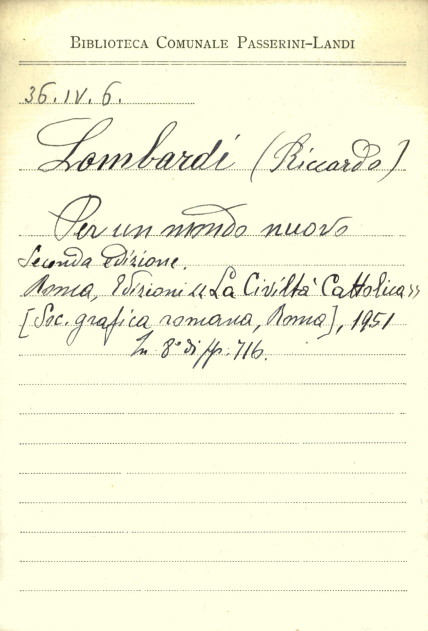 BIBLIOTECA COMUNALE PASSERINI-LANDI
36.IV.6.
Lombardi (Riccardo)
Per un mondo nuovo
Seconda edizione.
Roma, Edizioni «La Civiltà Cattolica»
[Soc. grafica romana, Roma], 1951
In 8° di pp. 716.